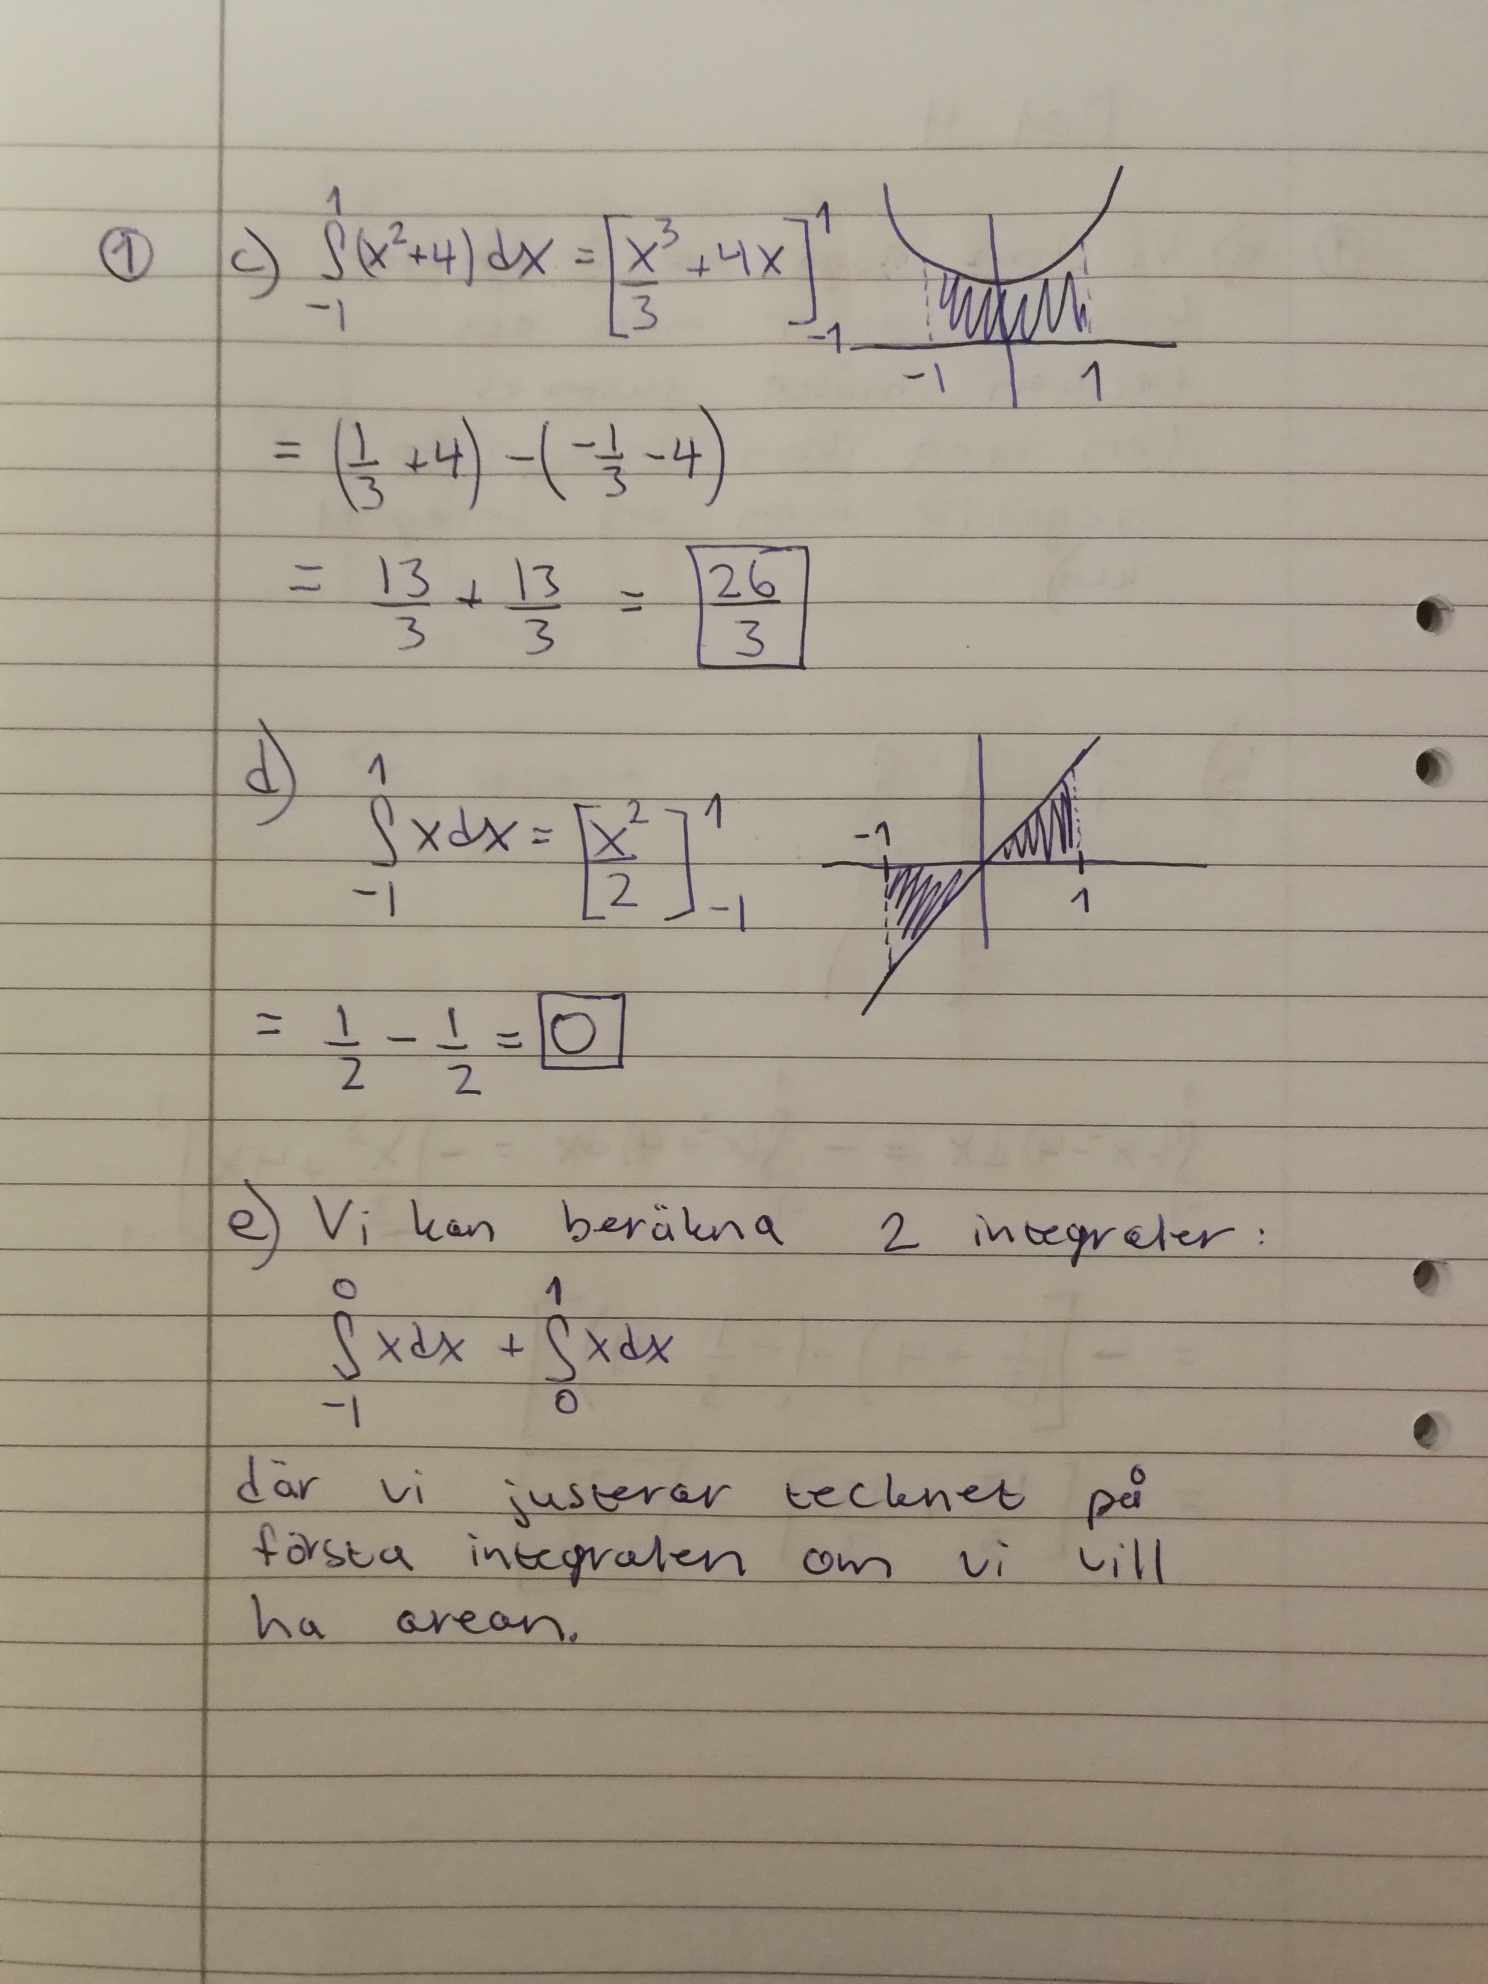 ① c) ∫₋₁¹ (x²+4) dx = [x³/3 + 4x]₋₁¹
-1 1
= (1/3 + 4) - (-1/3 - 4)
= 13/3 + 13/3 = 26/3
d) ∫₋₁¹ x dx = [x²/2]₋₁¹
-1 1
= 1/2 - 1/2 = 0
e) Vi kan beräkna 2 integraler:
∫₋₁⁰ x dx + ∫₀¹ x dx
där vi justerar tecknet på
första integralen om vi vill
ha arean.